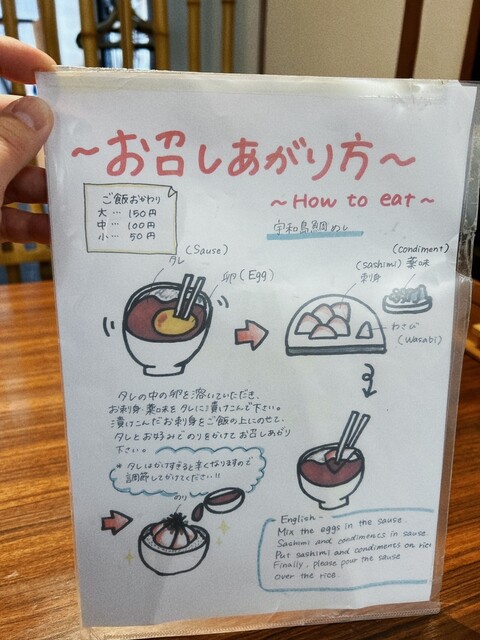 ～お召しあがり方～
～How to eat～
ご飯おかわり
大…150円
中…100円
小…50円
宇和島鯛めし
タレ (Sause)
卵 (Egg)
(condiment)
薬味
(sashimi)
刺身
わさび
(Wasabi)
タレの中の卵を溶いていただき、
お刺身・薬味をタレに漬けこんで下さい。
漬けこんだお刺身をご飯の上にのせて、
タレとお好みでのりをかけてお召しあがり
下さい。
* タレはかけすぎると辛くなりますので
調節してかけてください!!
のり
- English -
Mix the eggs in the sause.
Sashimi and condiments in sause.
Put sashimi and condiments on rice
Finally, please pour the sause
over the rice.